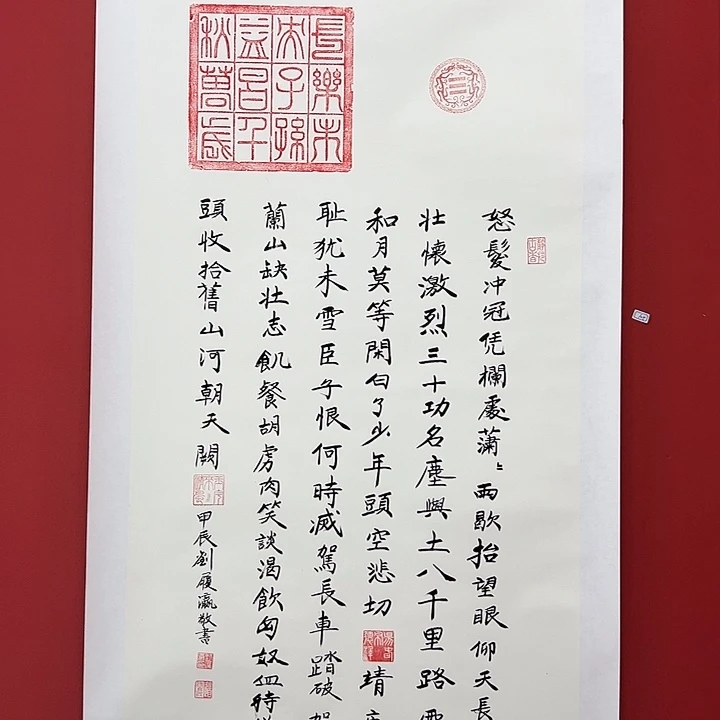 長樂未
央子孫
益昌千
秋萬歲
怒髮冲冠凭欄處瀟〻雨歇抬望眼仰天長
壯懷激烈三十功名塵與土八千里路雲
和月莫等閑白了少年頭空悲切
靖
耻犹未雪臣子恨何時滅駕長車踏破賀
蘭山缺壯志飢餐胡虜肉笑談渴飲匈奴血待
頭收拾舊山河朝天闕
甲辰劉履瀛敬書